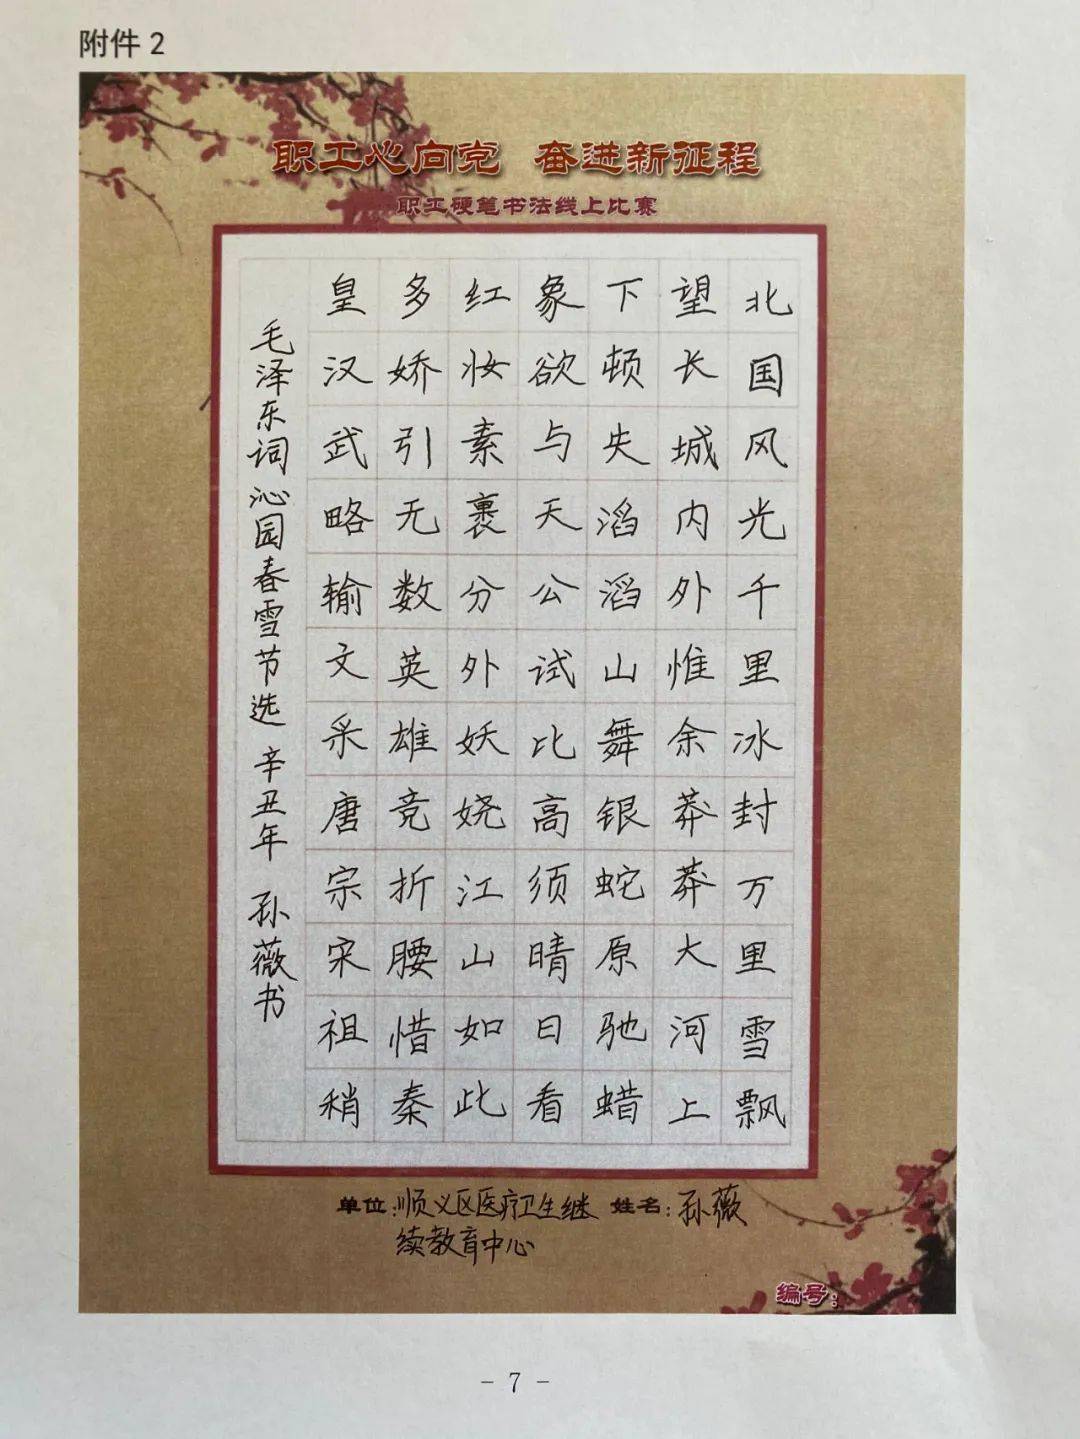 附件 2
职工心向党 奋进新征程
职工硬笔书法线上比赛
北国风光千里冰封万里雪飘
望长城内外惟余莽莽大河上
下顿失滔滔山舞银蛇原驰蜡
象欲与天公试比高须晴日看
红妆素裹分外妖娆江山如此
多娇引无数英雄竞折腰惜秦
皇汉武略输文采唐宗宋祖稍
毛泽东词沁园春雪节选 辛丑年 孙薇书
单位:顺义区医疗卫生继 姓名:孙薇
续教育中心
编号:
- 7 -